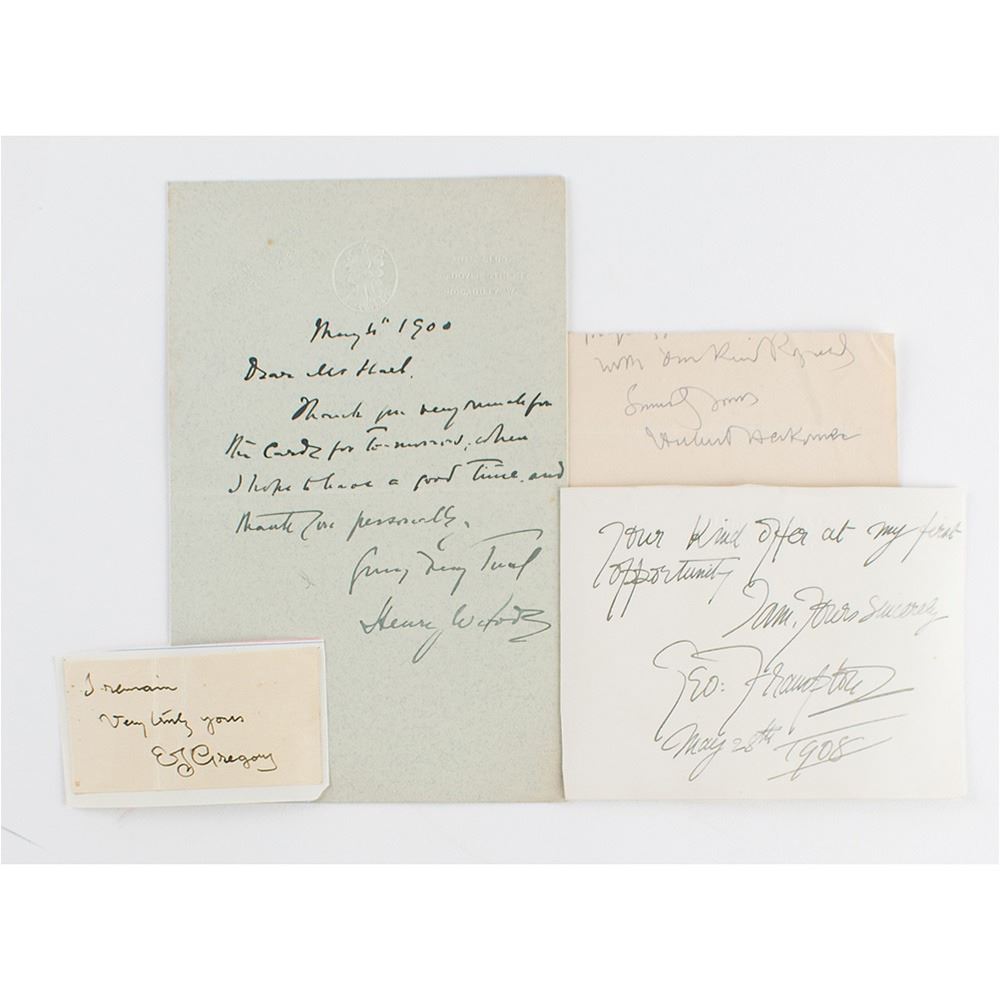 ARTS CLUB
DOVER STREET
PICCADILLY. W.
May 4th 1900
Dear Mr
Thank you very much for
the cards for to-morrow, when
I hope to have a good time, and
thank you personally.
Yours very truly
Henry Woods
With Kind Regards
Sincerely Yours
Hubert Herkomer
your kind offer at my first
opportunity
I am, Yours sincerely
Geo: Frampton
May 28th 1908
I remain
Very truly yours
EJ Gregory